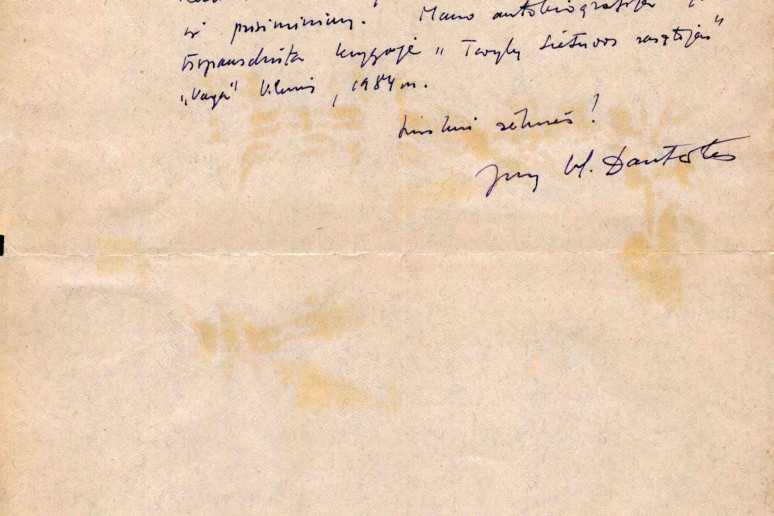 ir prisiminimų. Mano autobiografija
išspausdinta knygoje „Tarybų Lietuvos rašytojai"
„Vaga" Vilnius, 1984 m.
Linkiu sėkmės!
Jūsų Vl. Dautartas